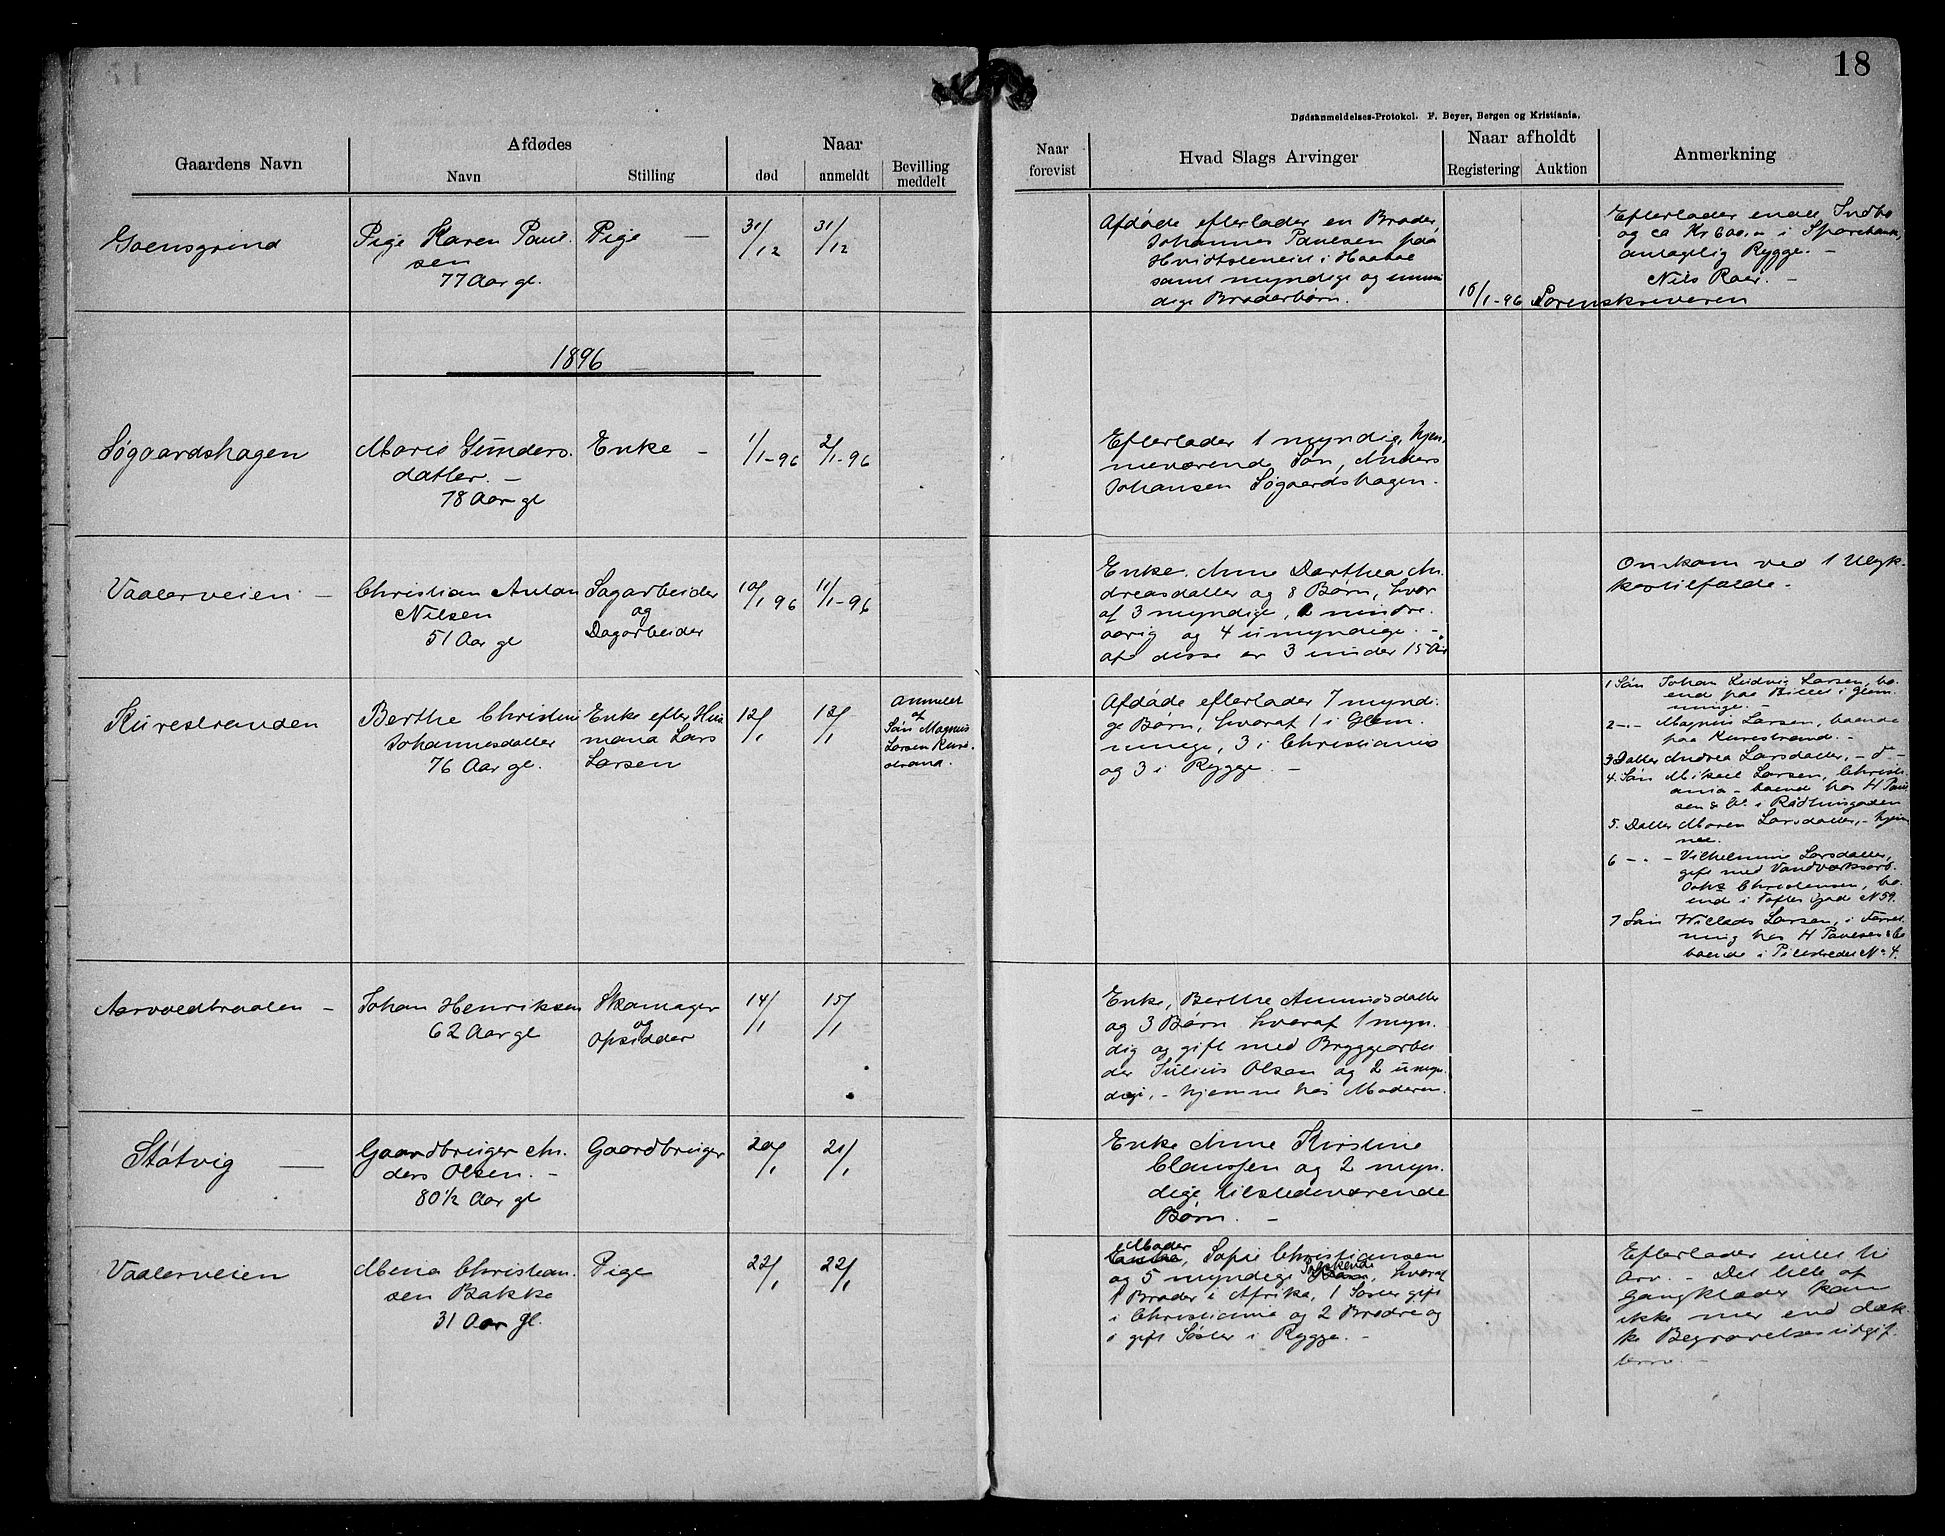 18
Dødsanmeldelses-Protokol. F. Beyer, Bergen og Kristiania.
Gaardens Navn
Afdødes
Navn
Stilling
Naar
død
anmeldt
Bevilling
meddelt
Naar
forevist
Hvad Slags Arvinger
Naar afholdt
Registering
Auktion
Anmerkning
Goensgrind
Pige Karen Paul-
sen
77 Aar gl.
Pige —
31/12
31/12
Afdøde efterlader en Broder,
Johannes Paulsen paa
Hvidtsteneiet i Haabøl
samt myndige og umyn
dige Broderbørn.
16/1-96 Sorenskriveren
Efterlader endel Indbo
og ca Kr 600,00 i Sparebank,
antagelig Rygge. —
Nils Roer. —
1896
Søgaardshagen
Maris Gunders-
datter. —
78 Aar gl
Enke —
1/1-96
2/1-96
Efterlader 1 myndig, hjem-
meværende Søn, Anders
Johansen Søgaardshagen.
Vaalerveien —
Christian Anton
Nilsen
51 Aar gl
Sagarbeider
og
Dagarbeider
10/1 96
11/1-96
Enke. Anne Dorthea An-
dreasdatter og 8 Børn, hvor
af 3 myndige, 1 mindre-
aarig og 4 umyndige. —
af disse er 3 under 15 Aar
Omkom ved 1 Ulyk-
kestilfælde. —
Kurestranden
Berthe Christine
Johannesdatter
76 Aar gl.
Enke efter Hus
mand Lars
Larsen
12/1
13/1
anmeldt
af
Søn Magnus
Larsen Kure-
strand.
Afdøde efterlader 7 myndi-
ge Børn, hvoraf 1 i Glem-
minge, 3 i Christiania
og 3 i Rygge. —
1 Søn Johan Ludvig Larsen, bo-
ende paa Billet i Glem-
minge. —
2 -"- Magnus Larsen, boende
paa Kurestrand. —
3 Datter Andrea Larsdatter, - do -
4. Søn Mikael Larsen, Christi-
ania - boende hos H Paul
sen & Co. i Raadhusgaden
5. Datter Maren Larsdatter, - hjem
me.
6 -"- Vilhelmine Larsdatter,
gift med Vandværksarb.
Johs Christensen, bo-
ende i Toftes Gade N 59.
7 Søn Willads Larsen, i Forret-
ning hos H Paulsen & Co
boende i Pilestrædet No 4.
Aarvoldbraaten —
Johan Henriksen
62 Aar gl
Skomager
og
Opsidder
14/1
15/1
Enke, Berthe Ammundsdatter
og 3 Børn hvoraf 1 myn-
dig og gift med Bryggearbei
der Julius Olsen og 2 umyn-
dige, - hjemme hos Moderen.
Støtvig —
Gaardbruger An-
ders Olsen. —
80 1/2 Aar gl
Gaardbruger
20/1
21/1
Enke Anne Kirstine
Claussen og 2 myn-
dige, tilstedeværende
Børn. —
Vaalerveien
Mena Christian-
sen Bakke
31 Aar gl.
Pige
22/1
22/1
Moder
Sofie Christiansen
og 5 myndige Søskende, hvoraf
1 Broder i Afrika, 1 Søster gift
i Christiania og 2 Brødre og
1 gift Søster i Rygge. —
Efterlader intet til
Arv. — Det lille af
Gangklæder kan
ikke mer end dæk-
ke Begravelsesudgif-
terne. —